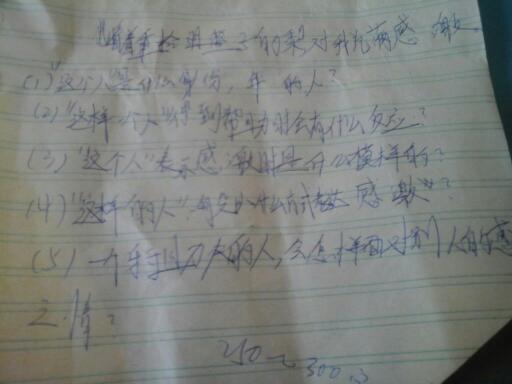 的梨,对我充满感激
(1)"这个人"是什么身份,年 的人?
(2)"这样一个人"得到帮助时会有什么反应?
(3)"这个人"表示感激时是什么模样的?
(4)"这样的人"会 什么方式表达感激"?
(5)一个 的人,会怎样面对别人的感
之情?
250~300字